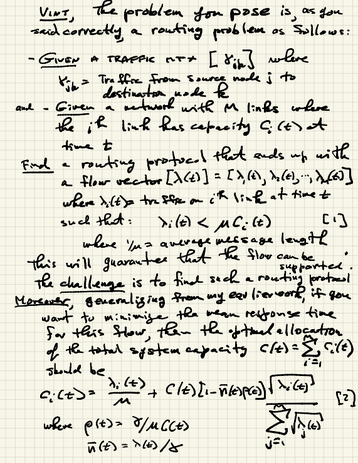 VINT, the problem you pose is, as you
said correctly, a routing problem as follows:
- GIVEN A TRAFFIC MTX [γjk] where
γjk = Traffic from source node j to
destination node k
and - Given a network with M links where
the ith link has capacity Ci(t) at
time t
Find a routing protocol that ends up with
a flow vector [λ(t)] = [λ1(t), λ2(t), ..., λM(t)]
where λi(t) = traffic on ith link at time t
such that: λi(t) < μCi(t) [1]
where 1/μ = average message length
This will guarantee that the flow can be
supported.
The challenge is to find such a routing protocol
Moreover, generalizing from my earlier work, if you
want to minimize the mean response time
for this flow, then the optimal allocation
of the total system capacity C(t) = Σ i=1 M Ci(t)
should be
Ci(t) = λi(t)/μ + C(t)[1-n̄(t)ρ(t)] √λi(t) / Σ j=1 M √λj(t) [2]
where ρ(t) = γ/μC(t)
n̄(t) = λ(t)/γ